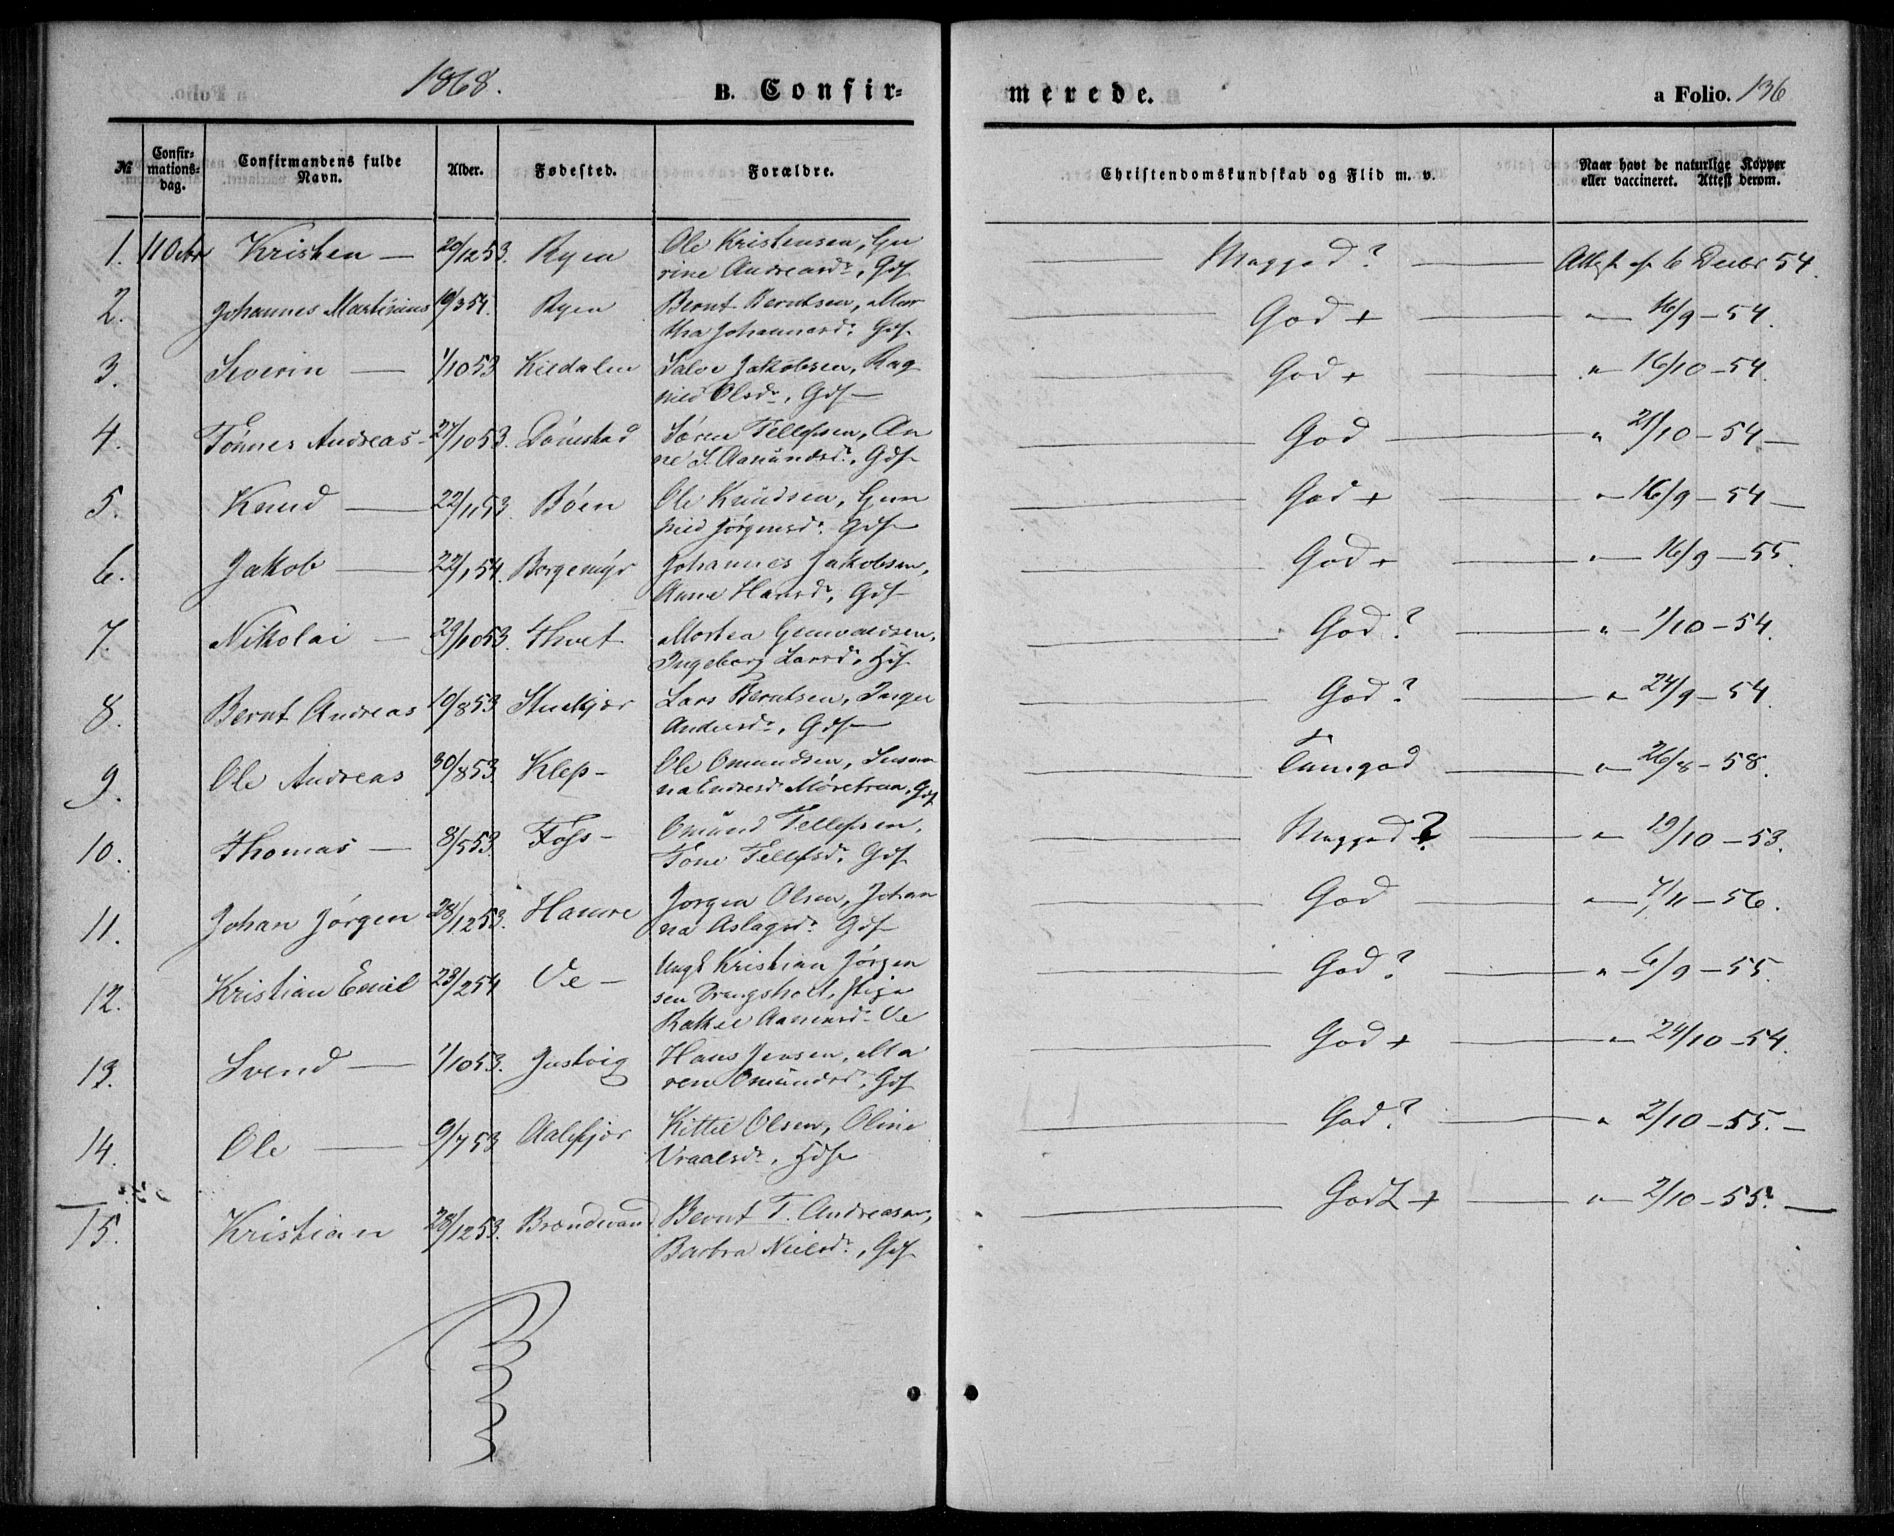 1868.
B. Confir=
merede.
a Folio. 136
№
Confir=
mations=
dag.
Confirmandens fulde
Navn.
Alder.
Fødested.
Forældre.
Christendomskundskab og Flid m. v.
Naar havt de naturlige Kopper
eller vaccineret. Attest derom.
1. 11 Octbr Kristen — 20/12 53. Ryen Ole Kristensen, Gu
rine Andreasdr, Gdf Meggod? Attest af 6 Decbr 54.
2. Johannes Martinius 19/3 54. Ryen Bernt Berntsen, Mar
tha Johannesdr. Gdf God + " 16/9 – 54.
3. Severin — 1/10 53 Kildalen Salve Jakobsen, Rag
nild Olsdr, Gdf — God + " 16/10 – 54.
4. Tønnes Andreas – 27/10 53. Dønnestad Søren Tellefsen, An
ne S. Aamundsdr. Gdf God " 21/10 – 54 —
5. Knud — 22/11 53 Bøen Ole Knudsen, Gun
nild Jørgensdr. Gdf — God + " 16/9 – 54 —
6. Jakob — 22/1 54. Borgemyr Johannes Jakobsen,
Anne Hansdr, Gdf God + " 16/9 – 55.
7. Nikolai — 29/10 53. Thvet Morten Gunvaldsen,
Ingeborg Larsdr, Hdf God? " 1/10 – 54.
8. Bernt Andreas 19/8 53 Stuekjær Lars Berntsen, Inger
Andersdr, Gdf — God? " 24/9 – 54.
9. Ole Andreas 30/8 53. Klep – Ole Omundsen, Susan
na Endresdr Møretrua, Gdf Tamgod " 26/8 – 58.
10. Thomas — 8/5 53. Foss – Omund Tellefsen,
Tone Tellefsdr, Gdf Megget? " 19/10 – 53.
11. Johan Jørgen 28/12 53. Hamre Jørgen Olsen, Johan
na Aslagsdr. Gdf God " 7/11 – 56.
12. Kristian Emil 23/2 54 Ve – Ungk Kristian Jørgen
sen Drangsholt, Pige
Rakel Aanensdr Ve God? " 6/9 – 55.
13. Svend — 1/10 53. Justvig Hans Jensen, Ma
ren Omundsdr, Gdf God + " 24/10 – 54.
14. Ole — 9/7 53 Aalefjær Kittel Olsen, Oline
Vraalsdr, Hdf God? " 2/10 – 55. –
15. Kristian 28/12 53. Brændvand Bernt T. Andreasen,
Barbra Nielsdr, Gdf Godt + " 2/10 – 55. —